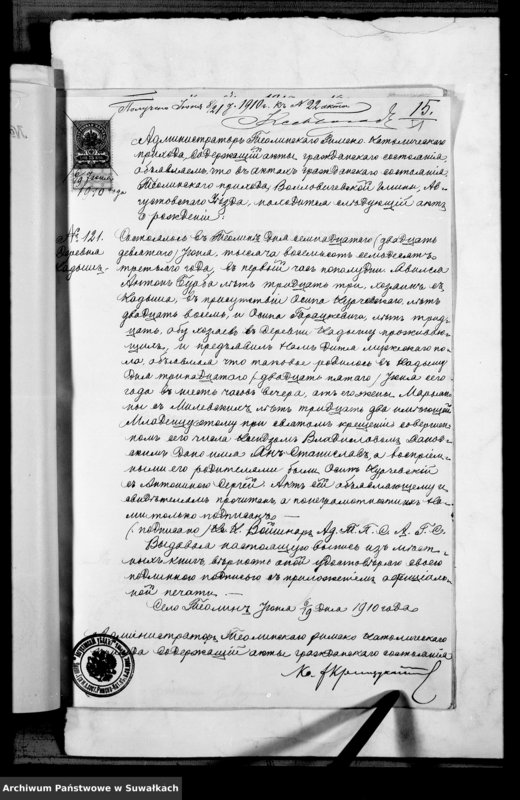 Получено Іюня 8/21 д. 1910 г. къ № 22 акта
15.
Администраторъ Теолинскаго Римско-Католическаго
прихода, содержащій акты гражданскаго состоянія,
объявляетъ, что въ актахъ гражданскаго состоянія
Теолинскаго прихода, Волловичевской гмины, Ав-
густовскаго уѣзда, находится слѣдующій актъ
о рожденіи:
№ 121.
Деревня
Кадышъ.
Состоялось въ Теолинѣ дня семнадцатаго (двадцать
девятаго) Іюля, тысяча восемьсотъ семьдесятъ
третьяго года, въ первый часъ пополудни. Явился
Антонъ Буба лѣтъ тридцать три, хозяинъ съ
Кадыша, въ присутствіи Осипа Курчевскаго, лѣтъ
двадцать восемь, и Осипа лѣтъ трид-
цать, обу хозяевъ въ деревни Кадышу проживаю-
щихъ, и предъявилъ Намъ дитя мужескаго по-
ла, объявляя что таковое родилось въ Кадышу
дня тринадцатаго (двадцать пятаго) Іюля сего
года въ шесть часовъ вечера, отъ его жены, Маріан-
ны съ лѣтъ тридцать два имѣющей
Младенцу этому при святомъ крещеніи совершен-
номъ сего числа Ксендзомъ Владиславомъ
дано имя Янъ Станиславъ, а воспріем-
никами его родителями были Осипъ Курчевскій
съ Антониною Сергей. Актъ сей объявляющему и
свидѣтелямъ прочитанъ, а понеграмотности ихъ На-
ми только подписанъ. —
(подписано) Кс. К. Войшнаръ Ад. Т. П. С. А. Г. С.
Выдавая настоящую выпись изъ мѣст-
ныхъ книгъ, вѣрность оной удостовѣряю своею
подлинною подписью съ приложеніемъ оффиціаль-
ной печати. —
Село Теолинъ, Іюня 6/19 дня 1910 года
Администраторъ Теолинскаго римско католическаго
прихода содержащій акты гражданскаго состоянія
Кс.
Archiwum Państwowe w Suwałkach